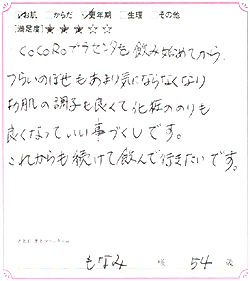 ☑お肌 □からだ ☑更年期 □生理 □その他
[満足度]★★★☆☆
CoCoRoプラセンタを飲み始めてから、
つらいのぼせもあまり気にならなくなり
お肌の調子も良くて化粧ののりも
良くなっていい事づくしです。
これからも続けて飲んで行きたいです。
もなみ 様 54 歳